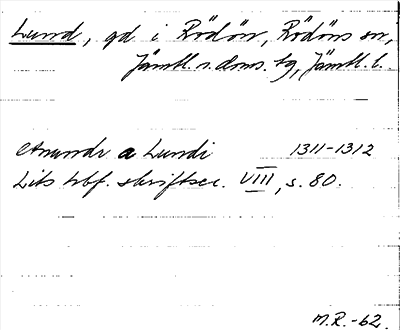 Lund, gd i Rödön, Rödöns sn,
Jämtl. n. doms. tg, Jämtl. l.
Anundr a Lundi 1311-1312
Lits hbf. skriftser. VIII, s. 80.
M.R.-62.